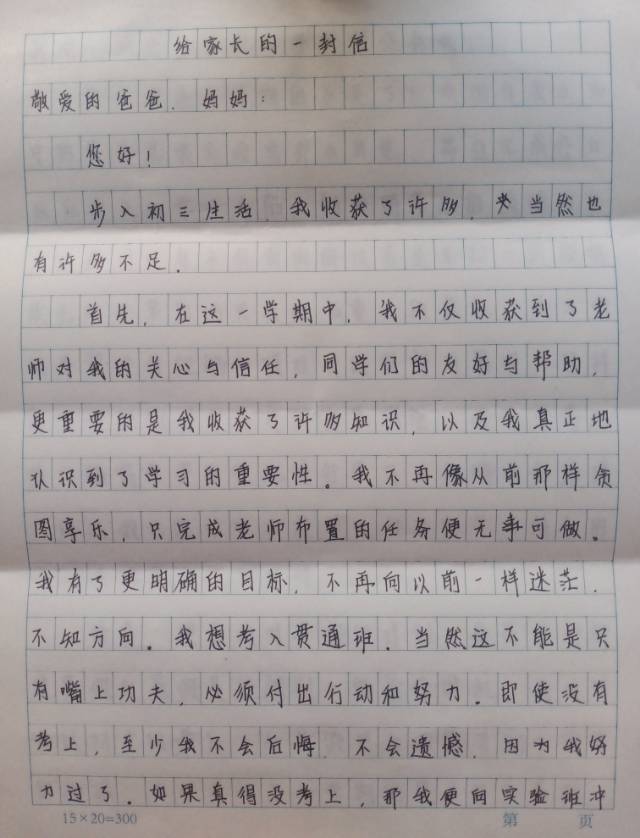 给家长的一封信
敬爱的爸爸、妈妈:
您好!
步入初三生活,我收获了许多,当然也
有许多不足。
首先,在这一学期中,我不仅收获到了老
师对我的关心与信任,同学们的友好与帮助,
更重要的是我收获了许多知识,以及我真正地
认识到了学习的重要性。我不再像从前那样贪
图享乐,只完成老师布置的任务便无事可做。
我有了更明确的目标,不再向以前一样迷茫,
不知方向。我想考入贯通班,当然这不能是只
有嘴上功夫,必须付出行动和努力。即使没有
考上,至少我不会后悔,不会遗憾,因为我努
力过了。如果真得没考上,那我便向实验班冲
15×20=300 第 页